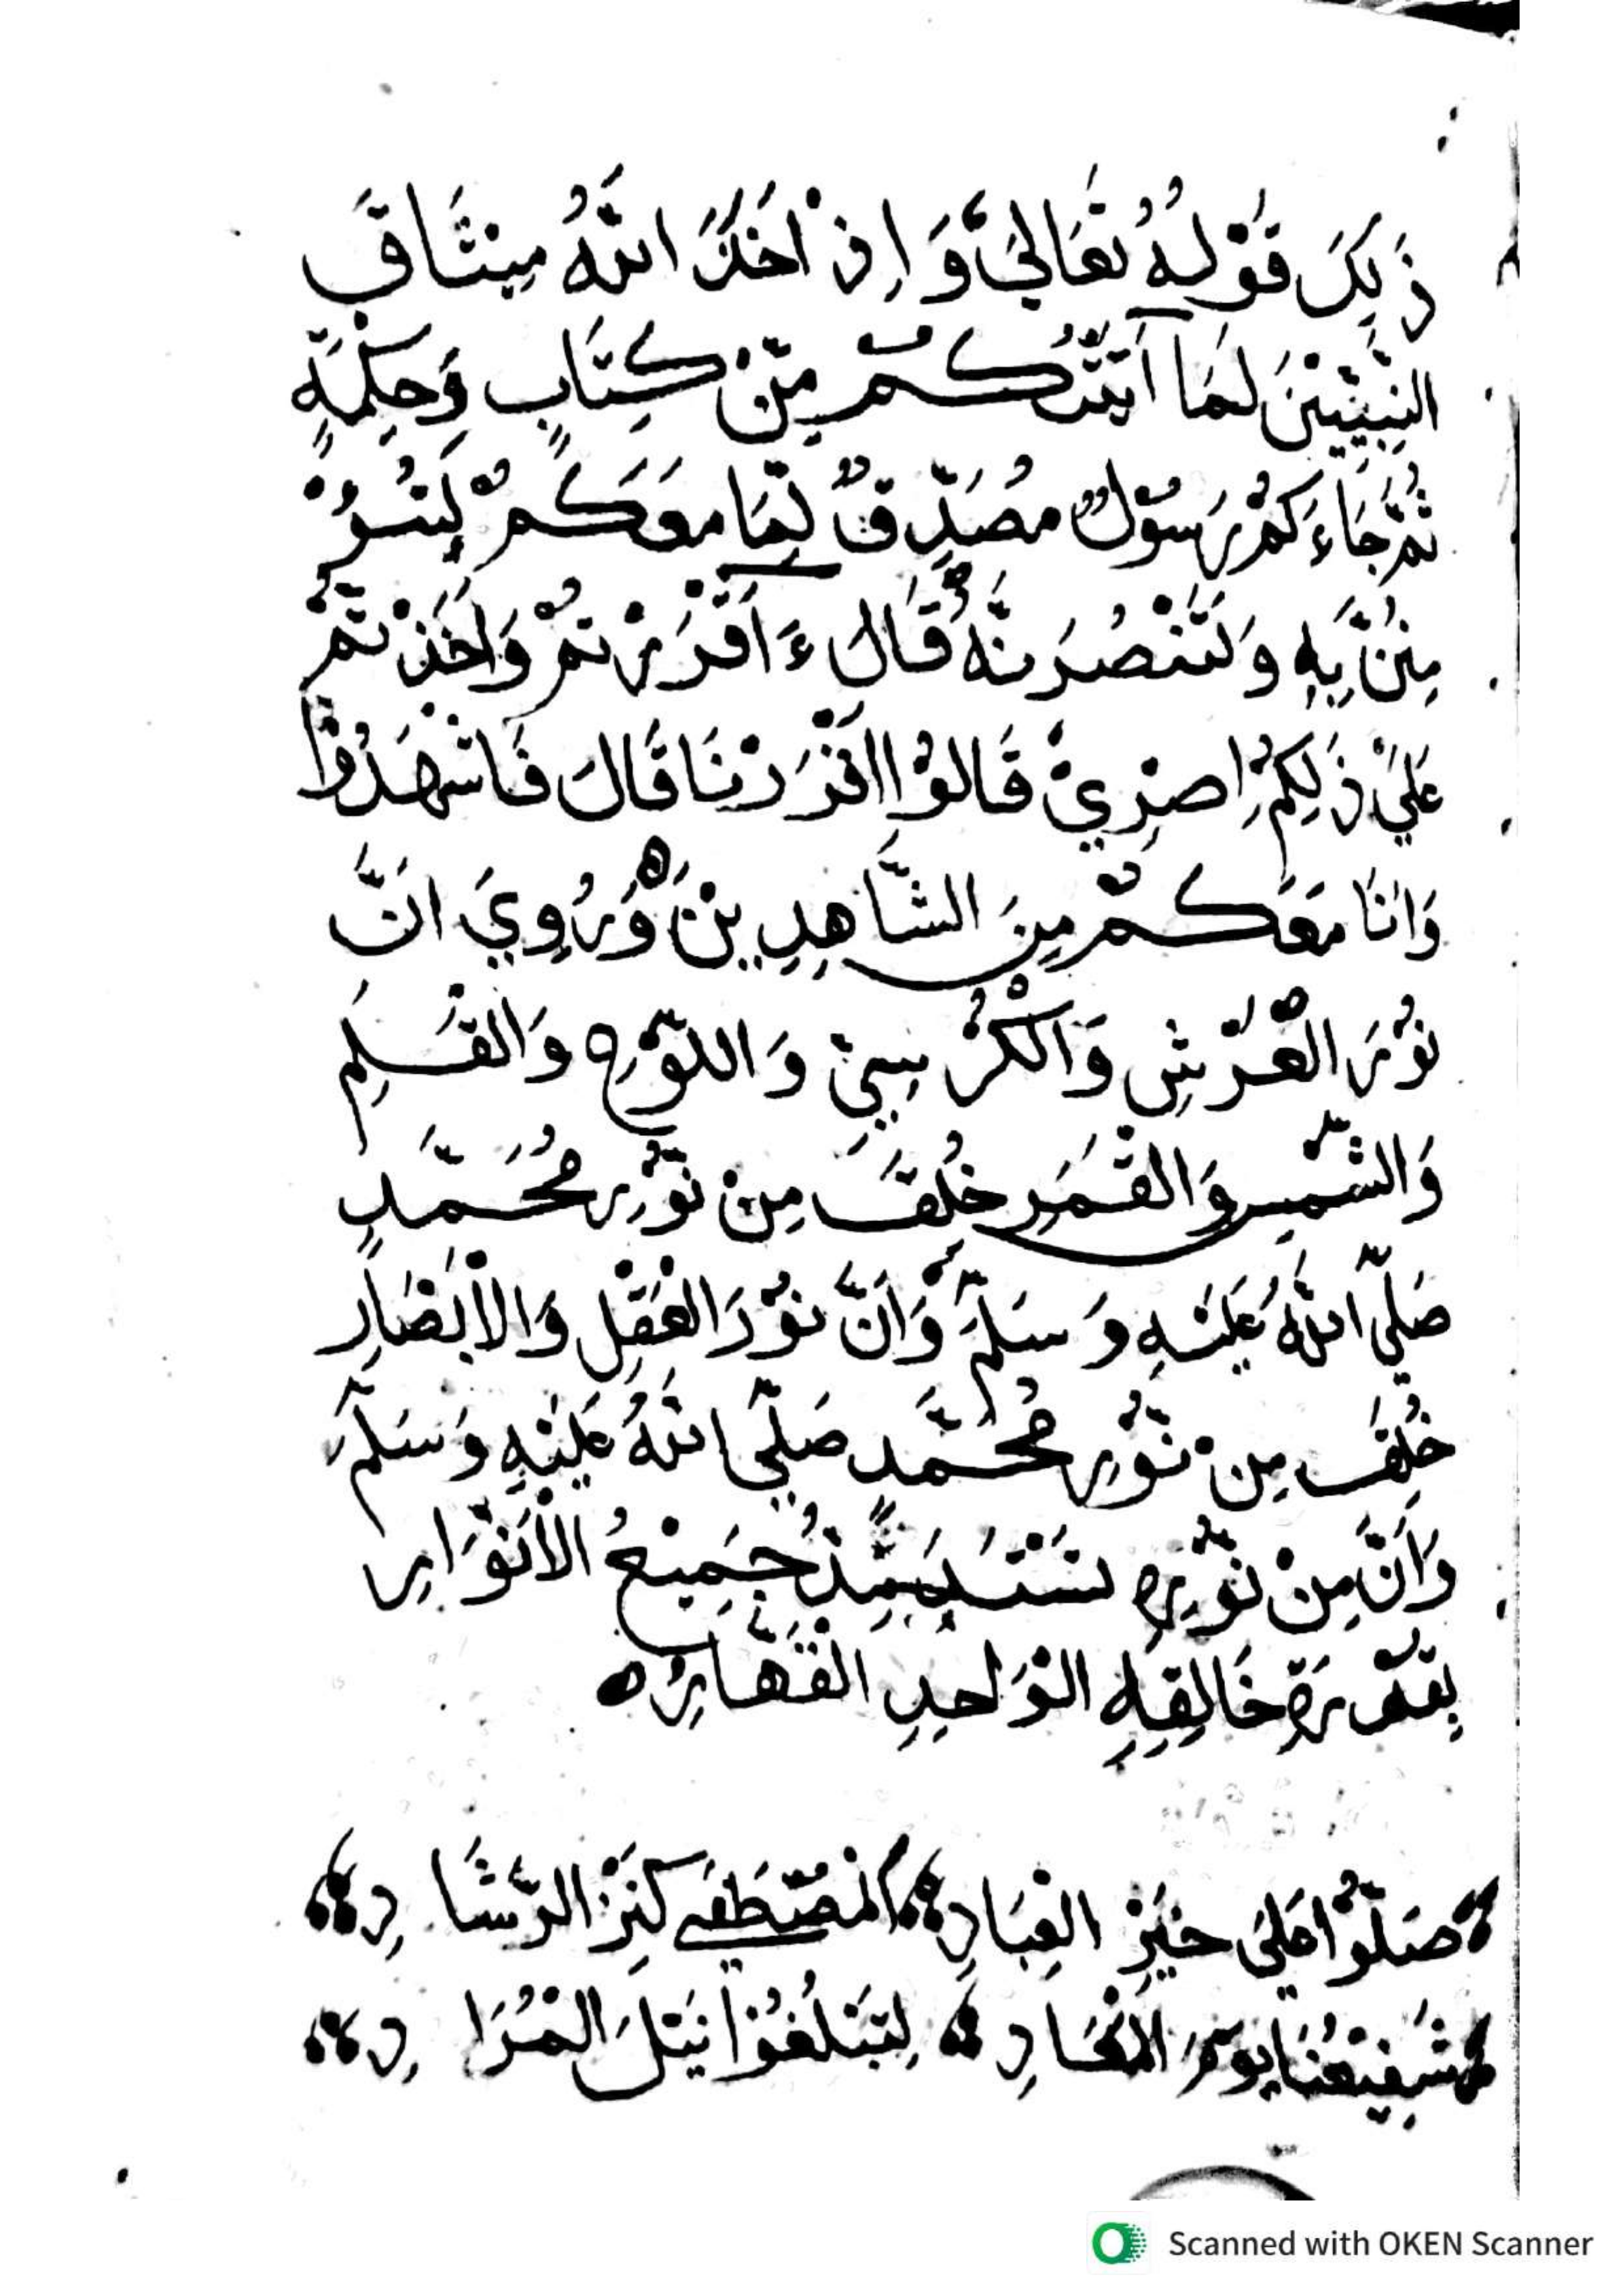 ذَلِكَ قَوْلُهُ تَعَالَى وَإِذْ أَخَذَ اللَّهُ مِيثَاقَ
النَّبِيِّيْنَ لَمَا آتَيْتُكُمْ مِّنْ كِتَابٍ وَحِكْمَةٍ
ثُمَّ جَاءَكُمْ رَسُوْلٌ مُصَدِّقٌ لِّمَا مَعَكُمْ لَتُؤْ
مِنُنَّ بِهِ وَلَتَنْصُرَنَّهُ قَالَ ءَاَقْرَرْتُمْ وَاَخَذْتُمْ
عَلَى ذَلِكُمْ اِصْرِيْ قَالُوْا اَقْرَرْنَا قَالَ فَاشْهَدُوْا
وَاَنَا مَعَكُمْ مِنَ الشَّاهِدِيْنَ وَرُوِيَ اَنَّ
نُوْرَ الْعَرْشِ وَالْكُرْسِيِّ وَاللَّوْحِ وَالْقَلَمِ
وَالشَّمْسِ وَالْقَمَرِ خُلِقَ مِنْ نُوْرِ مُحَمَّدٍ
صَلَّى اللَّهُ عَلَيْهِ وَسَلَّمَ وَاَنَّ نُوْرَ الْعَقْلِ وَالْاَبْصَارِ
خُلِقَ مِنْ نُوْرِ مُحَمَّدٍ صَلَّى اللَّهُ عَلَيْهِ وَسَلَّمَ
وَاَنَّ مِنْ نُوْرِهِ تَسْتَمِدُّ جَمِيْعُ الْاَنْوَارِ
بِقُدْرَةِ خَالِقِهِ الْوَاحِدِ الْقَهَّارِ ه
صَلُّوْا عَلَى خَيْرِ الْعِبَادِ الْمُصْطَفَى كَنْزِ الرَّشَادِ
شَفِيْعُنَا يَوْمَ الْمَعَادِ لِتَبْلُغُوْا نَيْلَ الْمُرَادِ
Scanned with OKEN Scanner